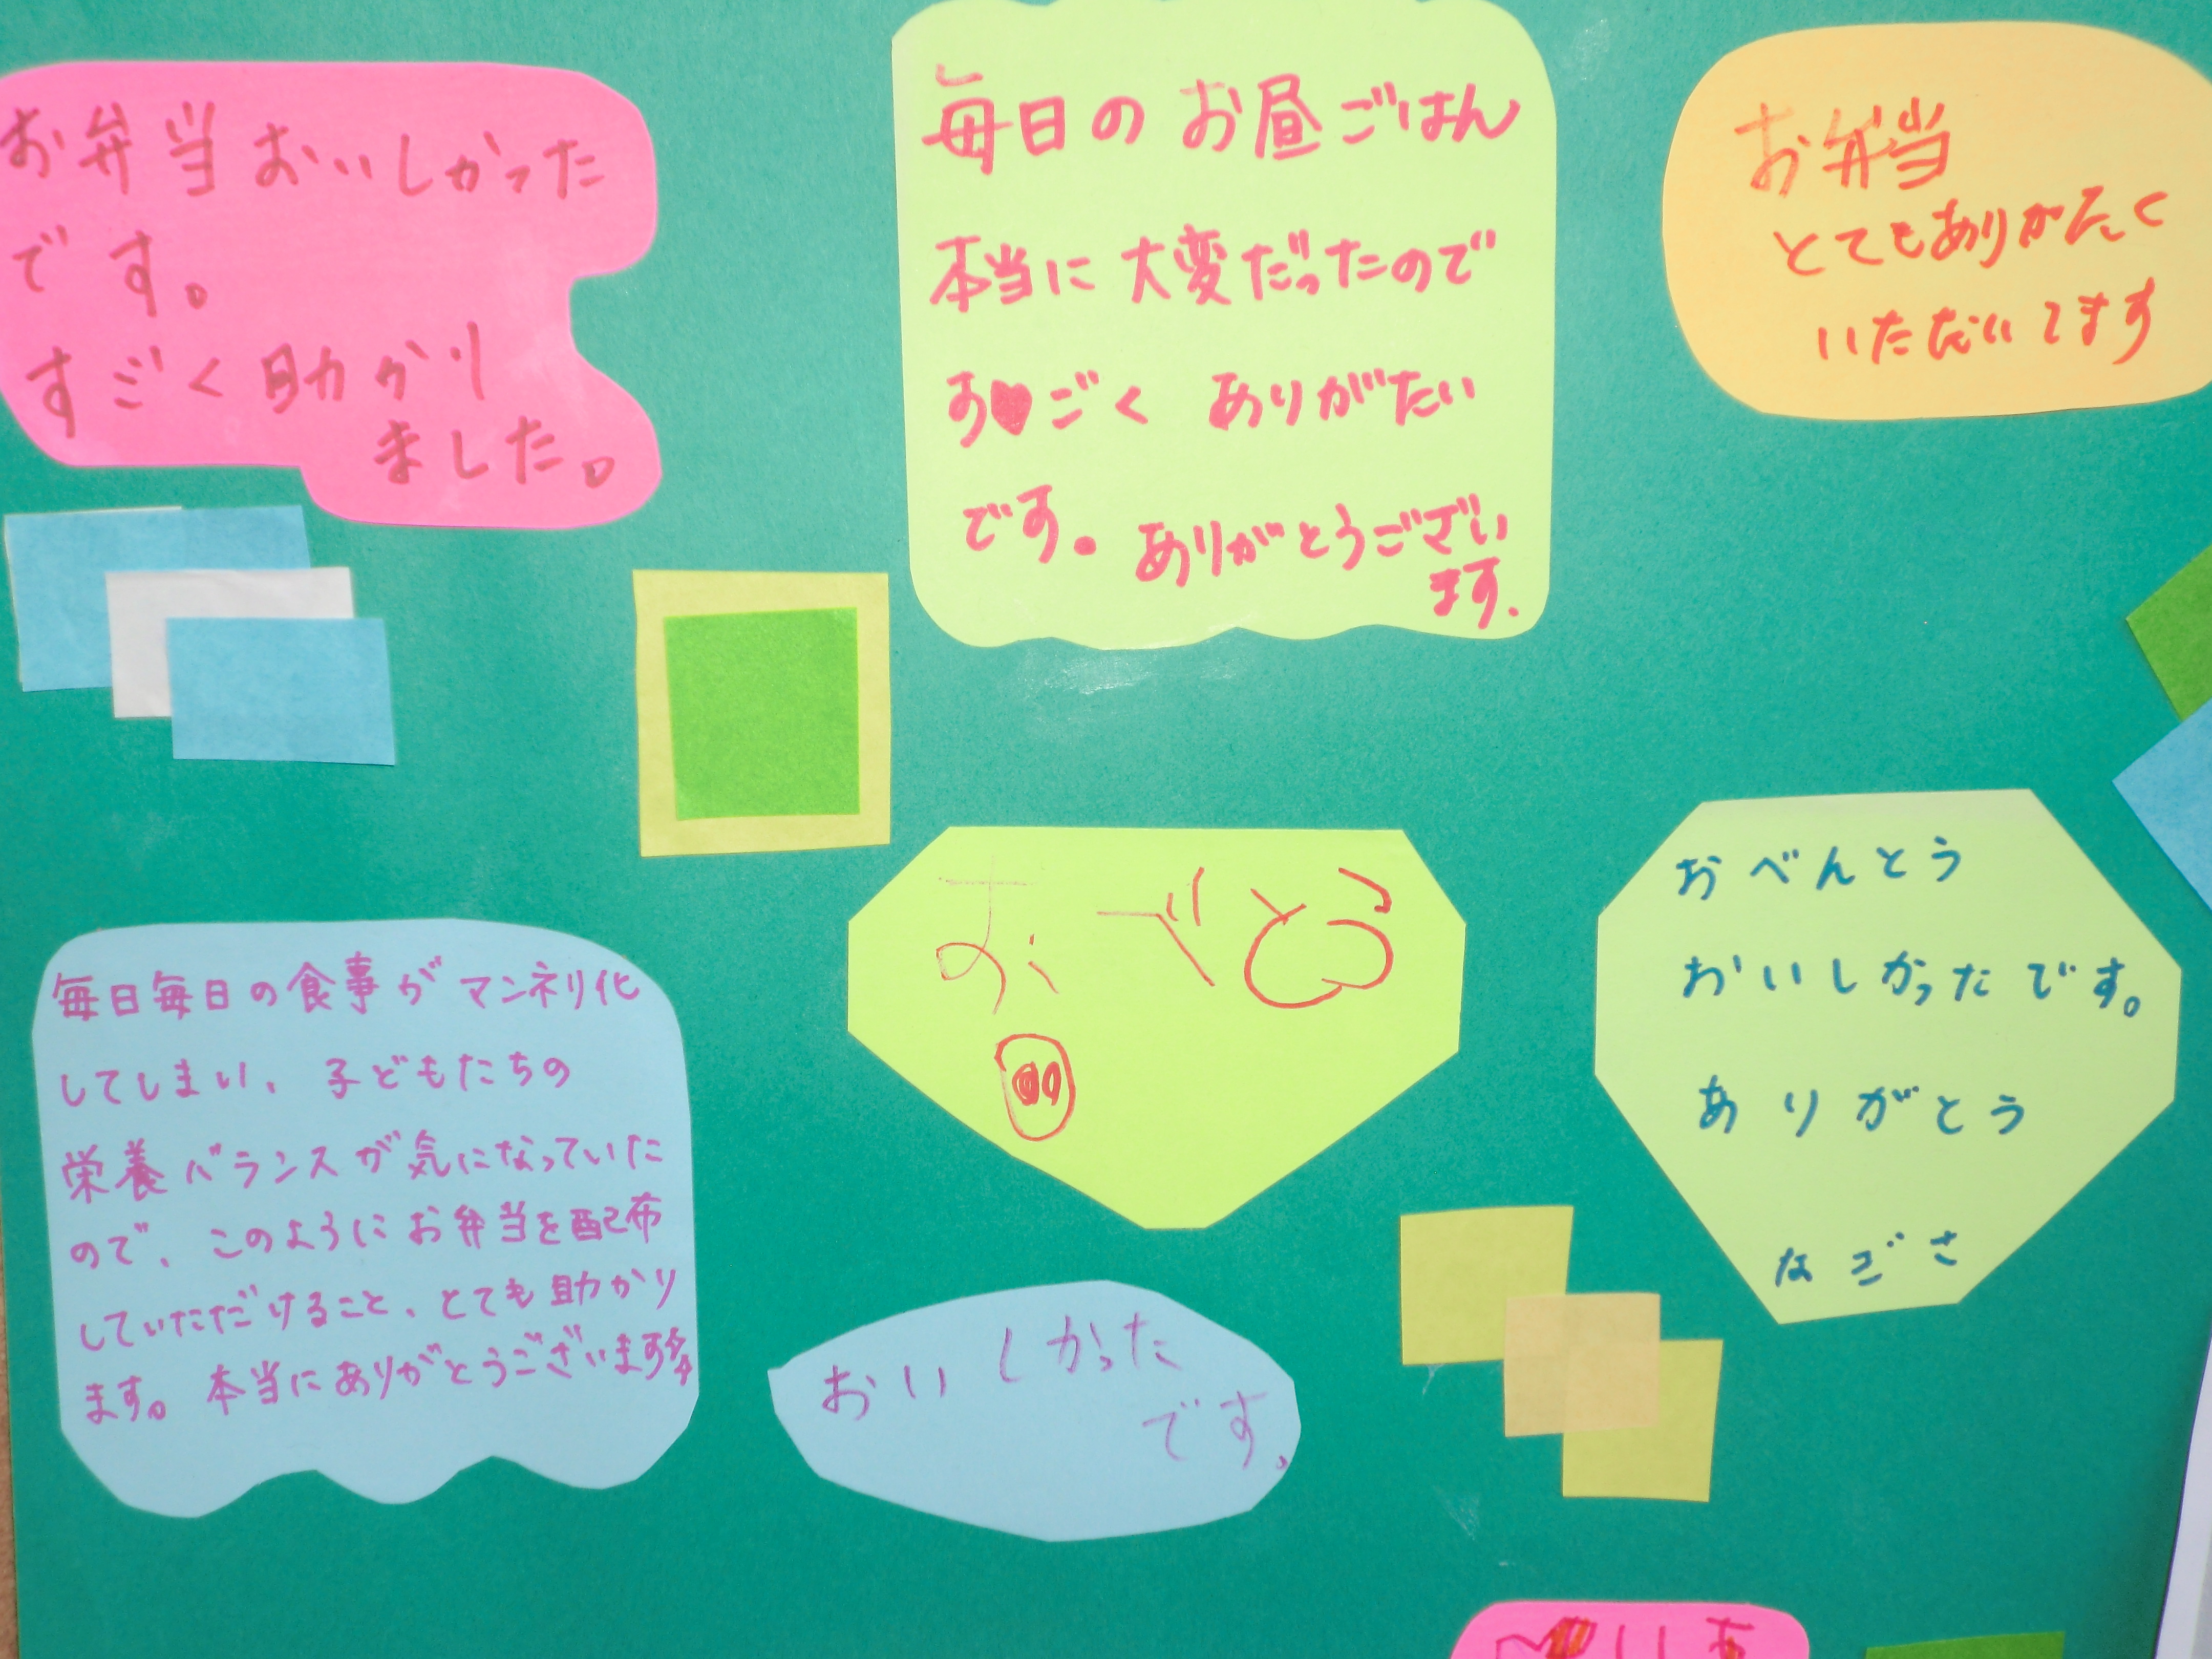 お弁当おいしかった
です。
すごく助かり
ました。
毎日のお昼ごはん
本当に大変だったので
す♥ごく ありがたい
です。ありがとうござい
ます.
お弁当
とてもありがたく
いただいてます
毎日毎日の食事がマンネリ化
してしまい、子どもたちの
栄養バランスが気になっていた
ので、このようにお弁当を配布
していただけること、とても助かり
ます。本当にありがとうございます
おべとう
おいしかった
です.
おべんとう
おいしかったです。
ありがとう
なごさ